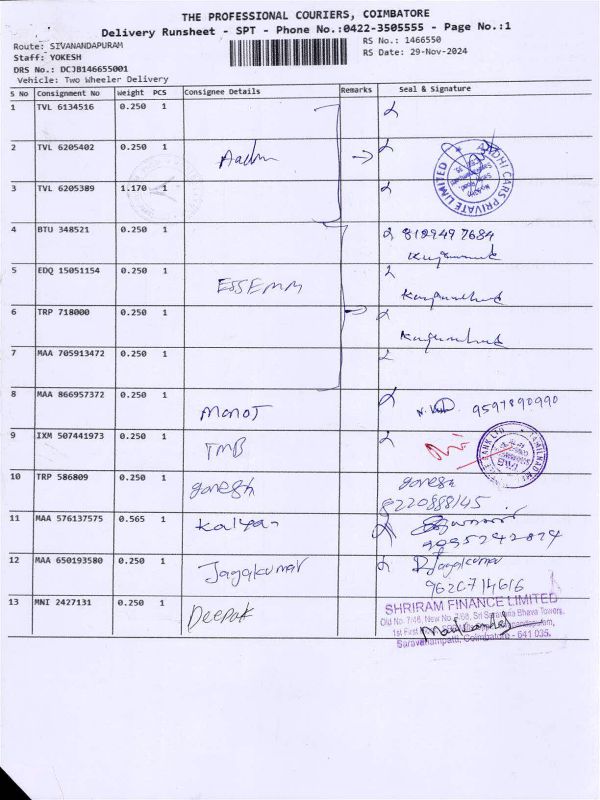 THE PROFESSIONAL COURIERS, COIMBATORE
Delivery Runsheet - SPT - Phone No.:0422-3505555 - Page No.:1
Route: SIVANANDAPURAM
RS No.: 1466550
Staff: YOKESH
RS Date: 29-Nov-2024
DRS No.: DCJB146655001
Vehicle: Two Wheeler Delivery
S No Consignment No Weight PCS Consignee Details Remarks Seal & Signature
1 TVL 6134516 0.250 1
2 TVL 6205402 0.250 1
3 TVL 6205389 1.170 1
CARS PRIVATE LIMITED
4 BTU 348521 0.250 1
5 EDQ 15051154 0.250 1 ESSEMM
6 TRP 718000 0.250 1
7 MAA 705913472 0.250 1
8 MAA 866957372 0.250 1 9597890990
9 IXM 507441973 0.250 1 TMB
10 TRP 586809 0.250 1 ganesh ganesh
8220888145
11 MAA 576137575 0.565 1 Kalyan
12 MAA 650193580 0.250 1 Jagakumar Jagakumar
13 MNI 2427131 0.250 1 Deepak
SHRIRAM FINANCE LIMITED
Saravanampatti, Coimbatore - 641 035.